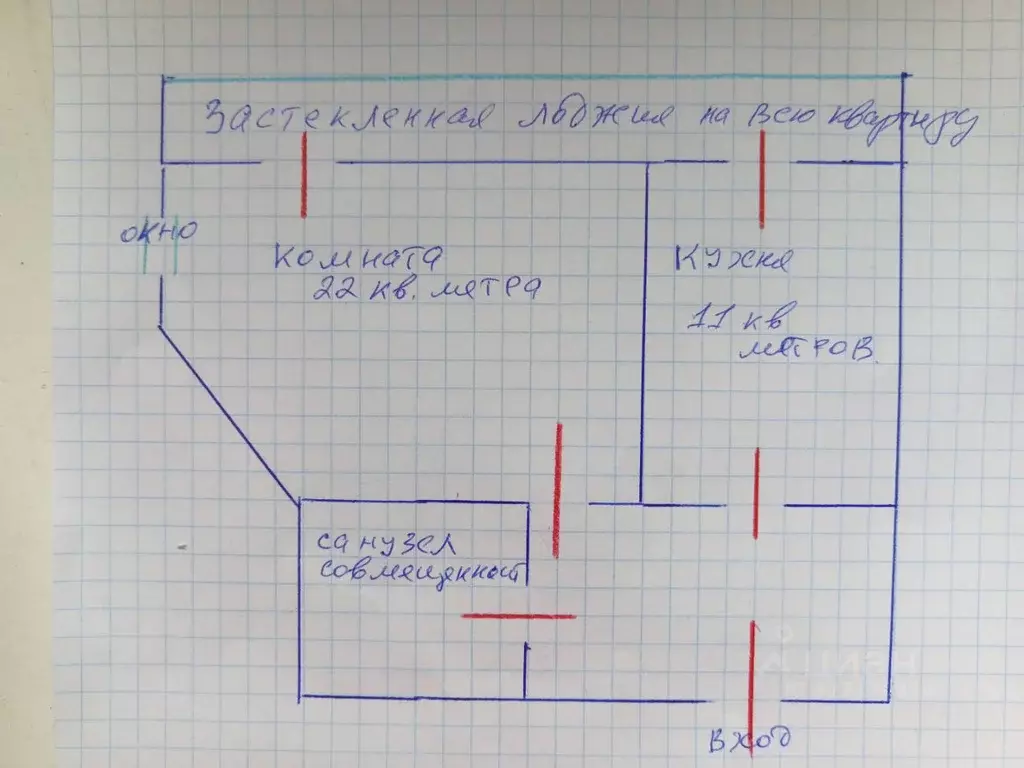 Застекленная лоджия на всю квартиру
окно
Комната
22 кв. метра
Кухня
11 кв
метров.
санузел
совмещенный
вход